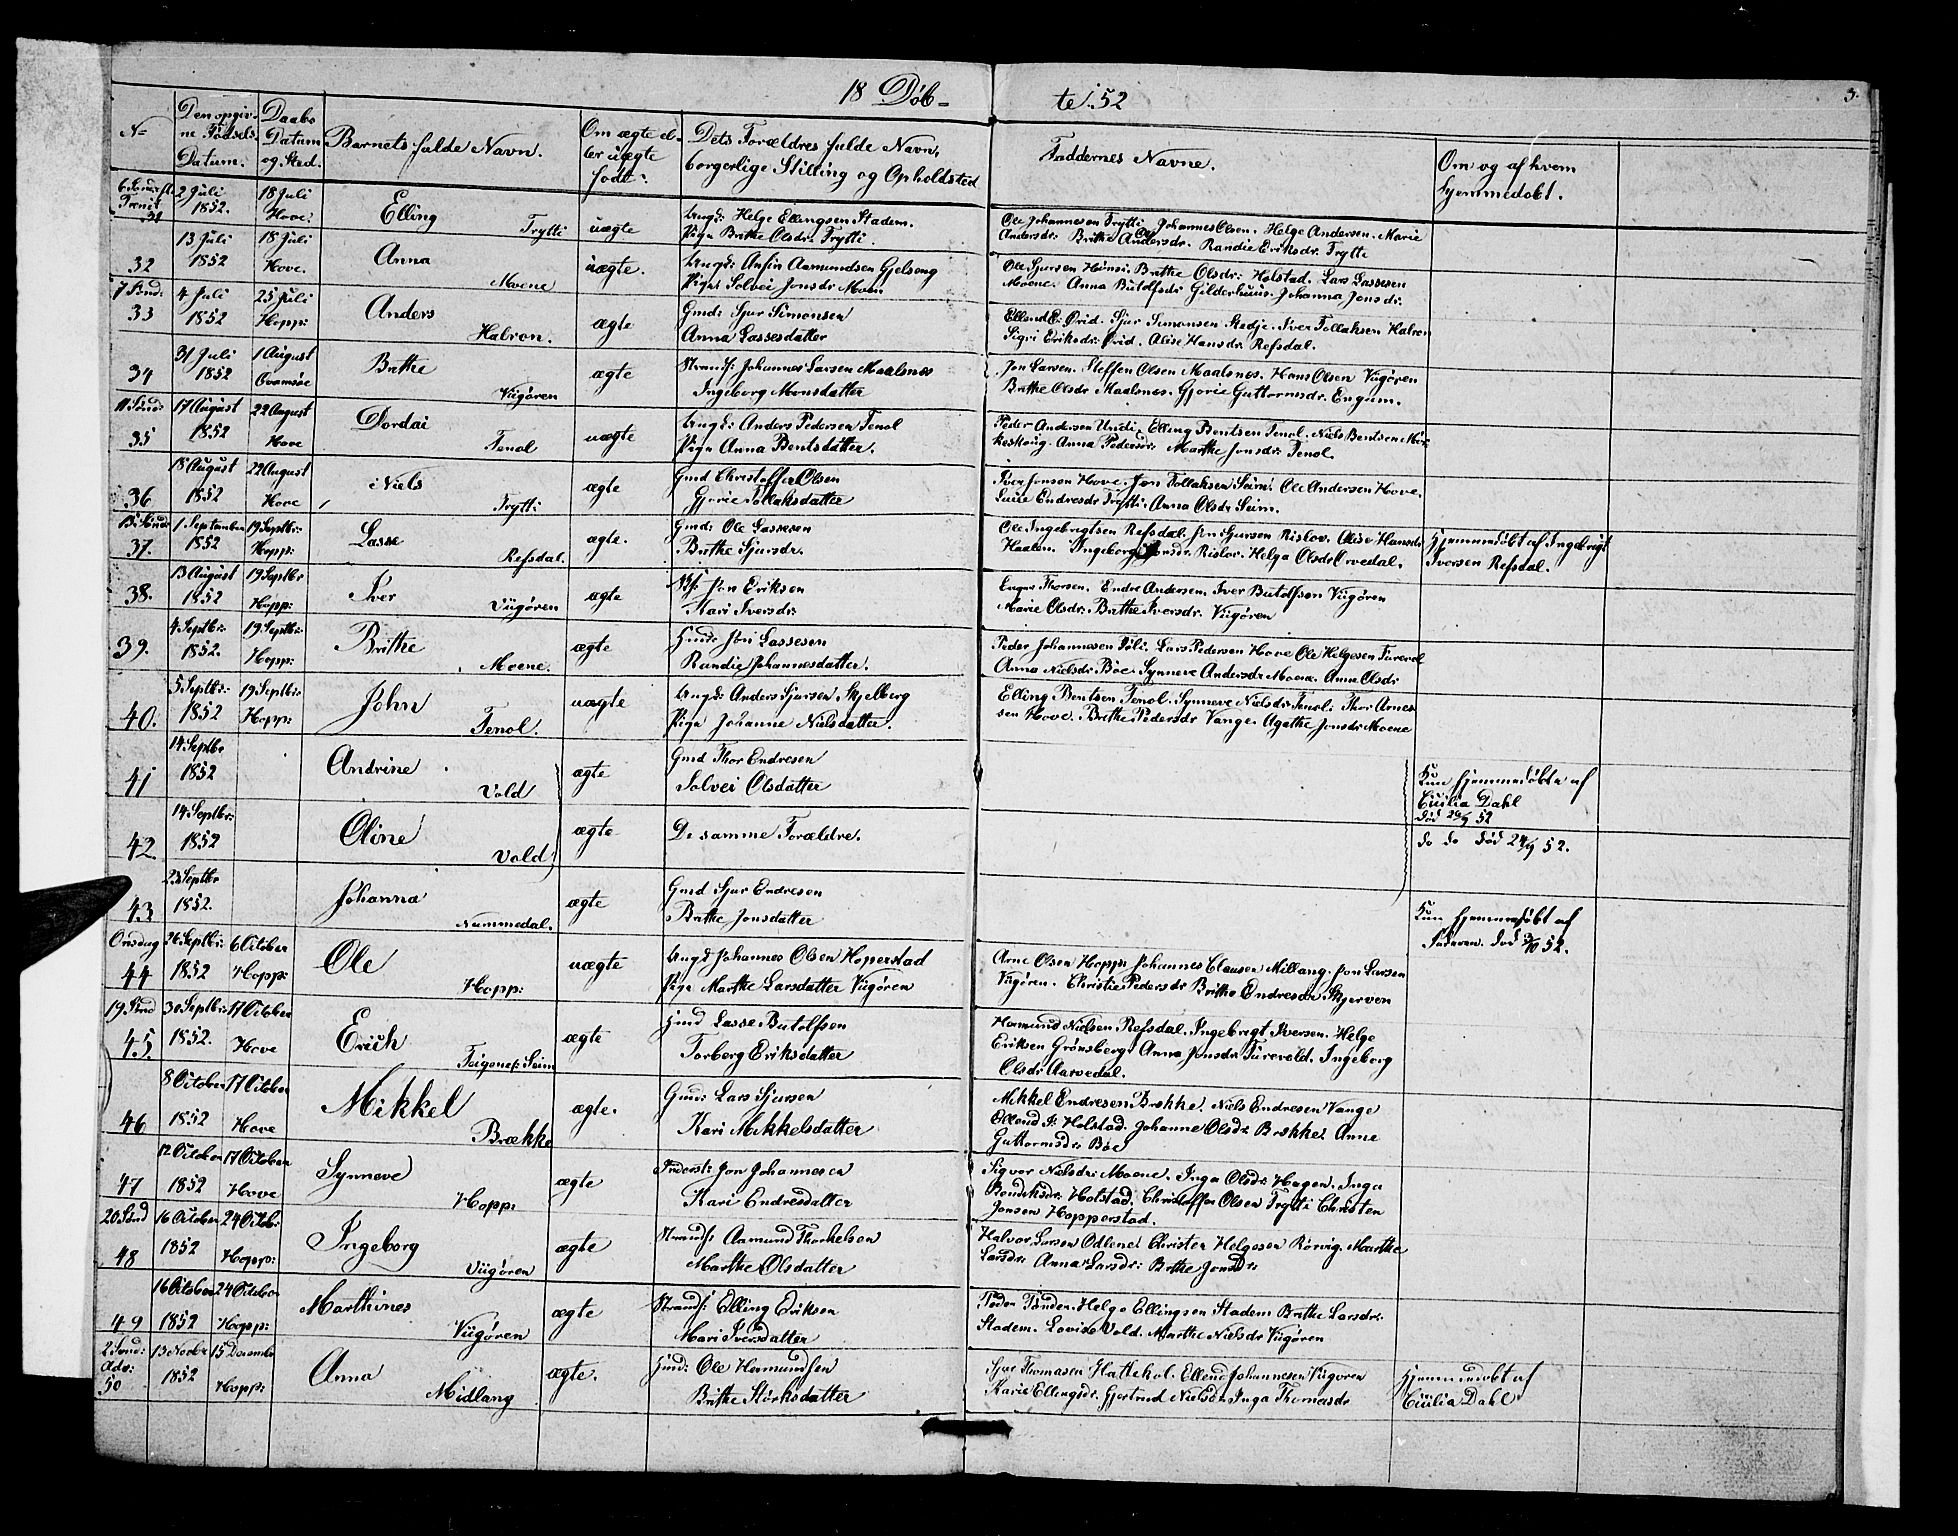 18 Döb-
te. 52
3.
No
Den opgiv-
ne Fødsels
Datum.
Daabs
Datum
og Sted.
Barnets fulde Navn.
Om ægte el-
ler uægte
født.
Dets Forældres fulde Navn,
borgerlige Stilling og Opholdsted
Faddernes Navne.
Om og af hvem
hjemmedøbt.
2 Juli
1852.
18 Juli
Hove.
Elling
Trytti
uægte
Ungk: Helge Ellingsen Stadem.
Pige Brithe Olsdr. Trytti.
Ole Johannesen Trytti. Johannes Olsen. Helge Andersen. Marie
Andersdr. Brithe Andersdr. Randie Eriksdr. Trytti
32
13 Juli
1852
18 Juli
Hove.
Anna
Moene
uægte.
Ungk: Anfin Aamundsen Gjelseng
Pige Solvei Jonsdr. Moen
Ole Sjursen Brithe Olsdr: Holstad. Lars Lassesen
Moene. Anna Butolfsdr Gilderhuus. Johanna Jonsdr.
7 Sönd:
33
4 Juli
1852
25 Juli
Hopp:
Anders
Halvon.
ægte
Gmd: Sjur Simonsen
Anna Lassesdatter
Ellend E. Ørid. Sjur Simonsen Stedje. Iver Tollaksen Halvon
Sigri Eriksdr. Ørid. Alise Hansdr. Refsdal.
34
31 Juli
1852
1 August
Qvamsöe
Brithe
Viigören
ægte
Strands: Johannes Larsen Maalsnes
Ingeborg Monsdatter
Jon Larsen. Steffen Olsen Maalsnes. Hans Olsen Viigören
Brithe Olsdr Maalsnes. Gjörie Guttormsdr. Engum.
11 Sönd:
35
17 August
1852
22 August
Hove
Dordai
Tenol
uægte
Ungk: Anders Pedersen Tenol
Pige Anna Bentsdatter.
Peder Andersen Undi. Elling Bentsen Tenol. Niels Bentsen Mör-
keskoug. Anna Pedersdr. Marthe Jonsdr. Tenol.
36
18 August
1852
22 August
Hove
Niels
Trytti
ægte
Gmd Christoffer Olsen
Gjörie Tollaksdatter
Iver Jonsen Hove. Jon Tollaksen Seim. Ole Andersen Hove.
Endresdr Trytti. Anna Olsdr Seim.
15 Sönd:
37.
1 September
1852
19 Septbr:
Hopp:
Lasse
Refsdal.
ægte.
Gmd: Ole Lassesen
Brithe Sjursdr.
Ole Ingebrigtsen Refsdal. Jon Sjursen Rislov. Alise Hansdr
Haalen. Ingeborg Jonsdr. Rislov. Helga Olsdr Orvedal.
Hjemmedöbt af Ingebrigt
Iversen Refsdal.
38.
13 August
1852
19 Septbr
Hopp:
Iver
Viigören
ægte
Jon Eriksen
Kari Iversdr.
Thorsen. Endre Andersen. Iver Butolfsen Viigören
Marie Olsdr. Brithe Iversdr. Viigören
39.
4 Septbr.
1852.
19 Septbr:
Hopp:
Brithe
Moene.
ægte
Huusm: Jon Lassesen
Randie Johannesdatter.
Peder Johannesen Föli. Lars Pedersen Hove Ole Helgesen Turevol
Anna Nielsdr. Böe. Synneve Andersdr. Moene. Anne Olsdr
40.
5 Septbr:
1852
19 Septbr:
Hopp:
John
Tenol.
uægte
Ungk: Anders Sjursen Skjelberg
Pige Johanne Nielsdatter.
Elling Bentsen Tenol. Synneve Nielsdr Tenol. Thor Arnes
sen Hove. Brithe Pedersdr Vange. Agathe Jonsdr. Moene
41
14 Septbr
1852
Andrine
Vold
ægte
Gmd Thor Endresen
Solvei Olsdatter
Kun hjemmedöbt af
Cecilia Dahl
död 20/9 52
42
14 Septbr:
1852
Oline
Vold
ægte
De samme Forældre.
do do död 24/9 52.
43
23 Septbr
1852.
Johanna
Nummedal.
ægte
Gmd Sjur Endresen
Brithe Jonsdatter
Kun hjemmedöbt af
Faderen. död 3/10 52.
Onsdag
44
26 Septbr:
1852
6 October
Hopp:
Ole
Hopp:
uægte
Ungk Johannes Olsen Hopperstad
Pige Marthe Larsdatter Viigören
Arne Olsen Hopp: Johannes Clausen Millang. Jon Larsen
Viigören. Christie Pedersdr Brithe Endresdr Skjerven
19 Sönd
45
30 Septbr.
1852.
17 October
Hove
Erich
Teigene p: Seim
ægte
Huusm Lasse Butolfsen
Torberg Eriksdatter
Hermund Nielsen Refsdal. Ingebrigt Iversen. Helge
Eriksen Grönsberg. Anna Jonsdr. Turevold. Ingeborg
Olsdr. Aarvedal.
46
8 October
1852
17 October
Hove
Mikkel
Brække
ægte.
Gmd: Lars Sjursen
Kari Mikkelsdatter
Mikkel Endresen Brække. Niels Endresen Vange
Ellend I. Holstad. Johanne Olsdr. Brække. Anne
Guttormsdr. Böe
47
12 October
1852
17 October
Hove
Synneve
Hopp:
ægte
Inderst: Jon Johannesen
Kari Endresdatter
Sigvor Nielsdr. Moene. Inga Olsdr. Hagen. Inga
Bendiksdr. Holstad. Christoffer Olsen Trytti Christen
Jonsen Hopperstad.
20 Sönd
48
16 October
1852
24 Octobr
Hopp:
Ingeborg
Viigören
ægte
Strands: Aamund Thorkelsen
Marthe Olsdatter
Halvor Larsen Odlene. Christen Helgesen Rörvig. Marthe
Larsdr. Anna Larsdr. Brithe Jonsdr:
49
16 October
1852
24 October
Hopp:
Marthines
Viigören
ægte
Strands: Elling Eriksen
Mari Iversdatter
Peder Tönder. Helge Ellingsen Stadem Brithe Larsdr.
Stadem. Lovise Vold. Marthe Nielsdr Viigören
2 Sönd:
Adv:
50
13 Novbr
1852
15 December
Hopp:
Anna
Midlang
ægte.
Huusm: Ole Hermundsen
Brithe Störksdatter
Sjur Thomasen Hattehol. Ellend Johannesen Viigören
Karie Ellingsdr. Gjertrud Nielsdr Inga Thomasdr
Hjemmedöbt af
Cecilia Dahl